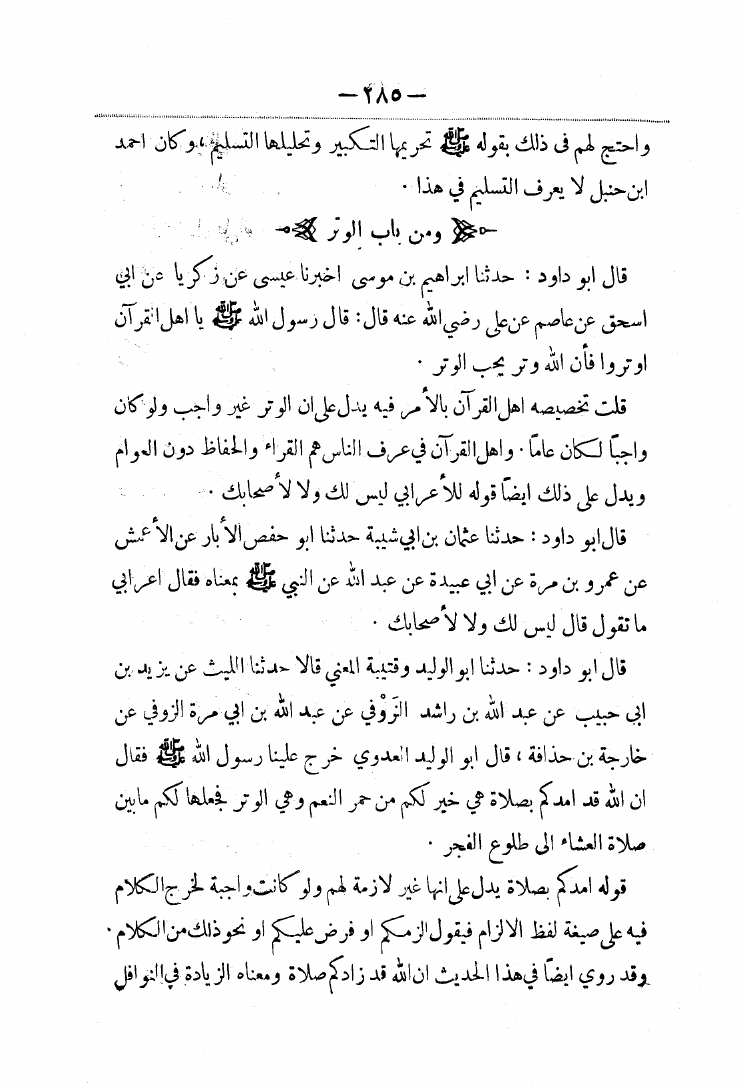 — ٢٨٥ —
واحتج لهم فى ذلك بقوله ﷺ تحريمها التكبير وتحليلها التسليم ، وكان احمد
ابن حنبل لا يعرف التسليم في هذا .
ومن باب الوتر
قال ابو داود : حدثنا ابراهيم بن موسى اخبرنا عيسى عن زكريا عن ابي
اسحق عن عاصم عن على رضي الله عنه قال : قال رسول الله ﷺ يا اهل القرآن
اوتروا فأن الله وتر يحب الوتر .
قلت تخصيصه اهل القرآن بالأمر فيه يدل على ان الوتر غير واجب ولو كان
واجباً لكان عاماً . واهل القرآن في عرف الناس هم القراء والحفاظ دون العوام
ويدل على ذلك ايضاً قوله للأعرابي ليس لك ولا لأصحابك .
قال ابو داود : حدثنا عثمان بن ابي شيبة حدثنا ابو حفص الأبار عن الأعمش
عن عمرو بن مرة عن ابي عبيدة عن عبد الله عن النبي ﷺ بمعناه فقال اعرابي
ما تقول قال ليس لك ولا لأصحابك .
قال ابو داود : حدثنا ابو الوليد وقتيبة المعني قالا حدثنا الليث عن يزيد بن
ابي حبيب عن عبد الله بن راشد الزَوْفي عن عبد الله بن ابي مرة الزوفي عن
خارجة بن حذافة ، قال ابو الوليد العدوي خرج علينا رسول الله ﷺ فقال
ان الله قد امدكم بصلاة هي خير لكم من حمر النعم وهي الوتر فجعلها لكم مابين
صلاة العشاء الى طلوع الفجر .
قوله امدكم بصلاة يدل على انها غير لازمة لهم ولو كانت واجبة لخرج الكلام
فيه على صيغة لفظ الالزام فيقول الزمكم او فرض عليكم او نحو ذلك من الكلام .
وقد روي ايضاً في هذا الحديث ان الله قد زادكم صلاة ومعناه الزيادة في النوافل